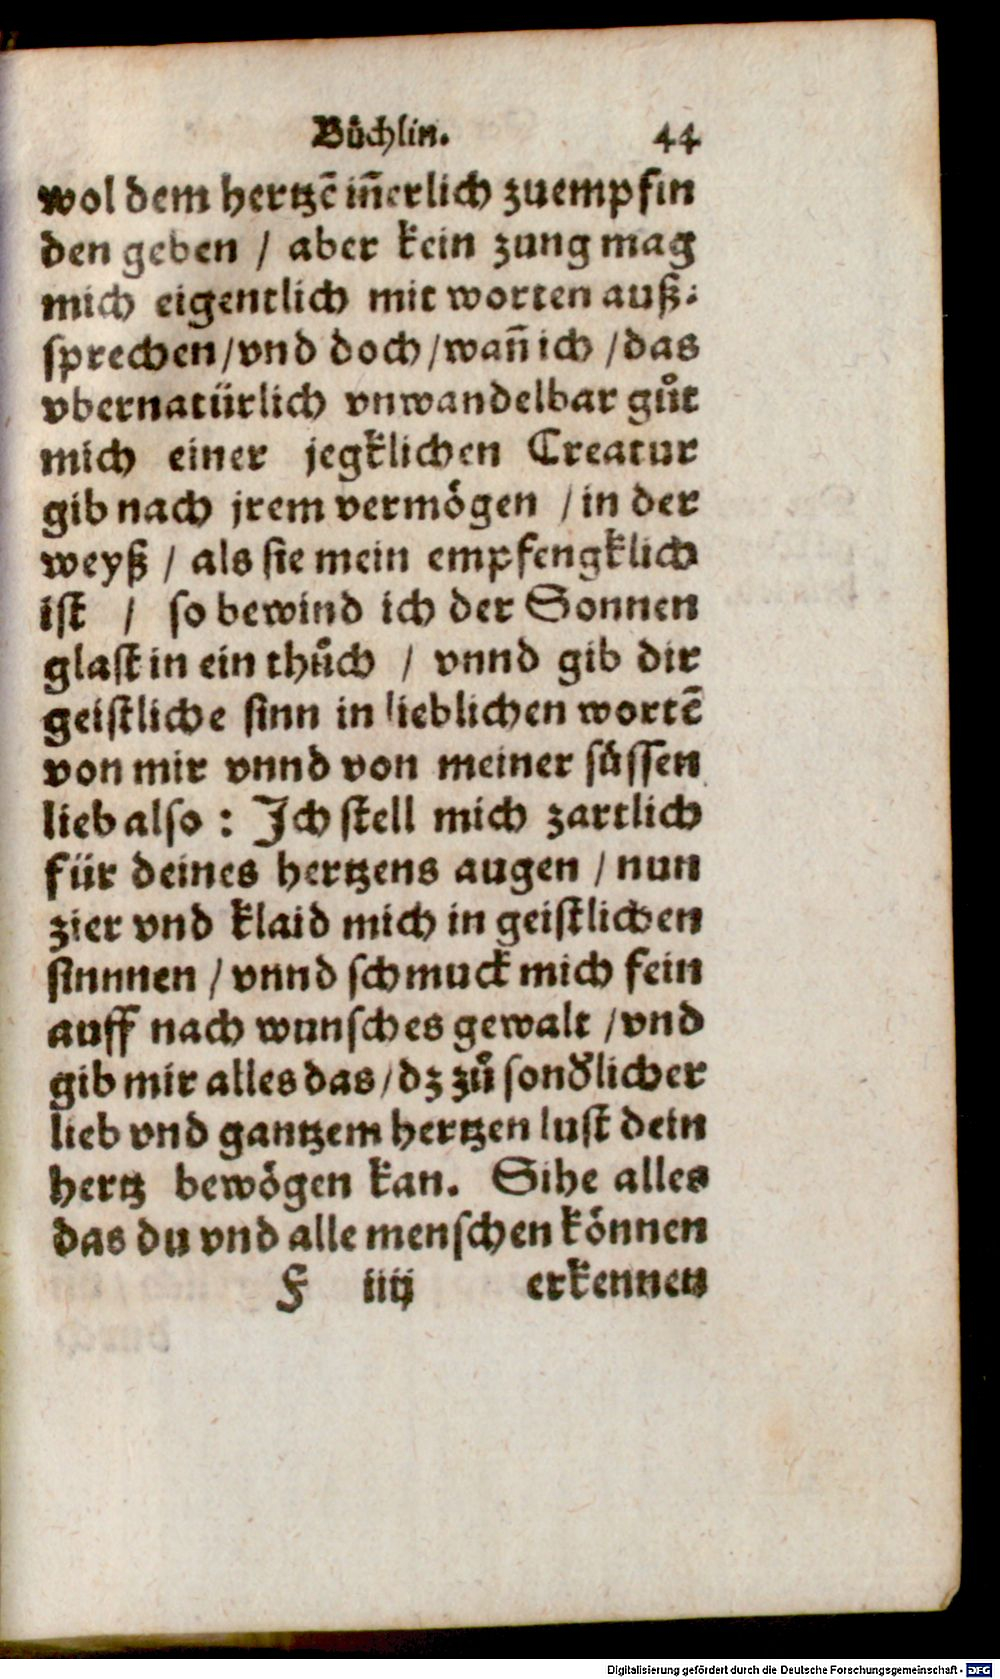 Bůchlin. 44
wol dem hertzē iñerlich zuempfin
den geben / aber kein zung mag
mich eigentlich mit worten auß⸗
sprechen/vnd doch/wañ ich /das
vbernatürlich vnwandelbar gůt
mich einer jegklichen Creatur
gib nach jrem vermögen /in der
weyß / als sie mein empfengklich
ist / so bewind ich der Sonnen
glast in ein thůch / vnnd gib dir
geistliche sinn in lieblichen wortē
von mir vnnd von meiner süssen
lieb also : Ich stell mich zartlich
für deines hertzens augen / nun
zier vnd klaid mich in geistlichen
sinnnen / vnnd schmuck mich fein
auff nach wunsches gewalt /vnd
gib mir alles das/dz zů sonđlicher
lieb vnd gantzem hertzen lust dein
hertz bewögen kan. Sihe alles
das du vnd alle menschen können
F iiij erkennen
Digitalisierung gefördert durch die Deutsche Forschungsgemeinschaft - DFG